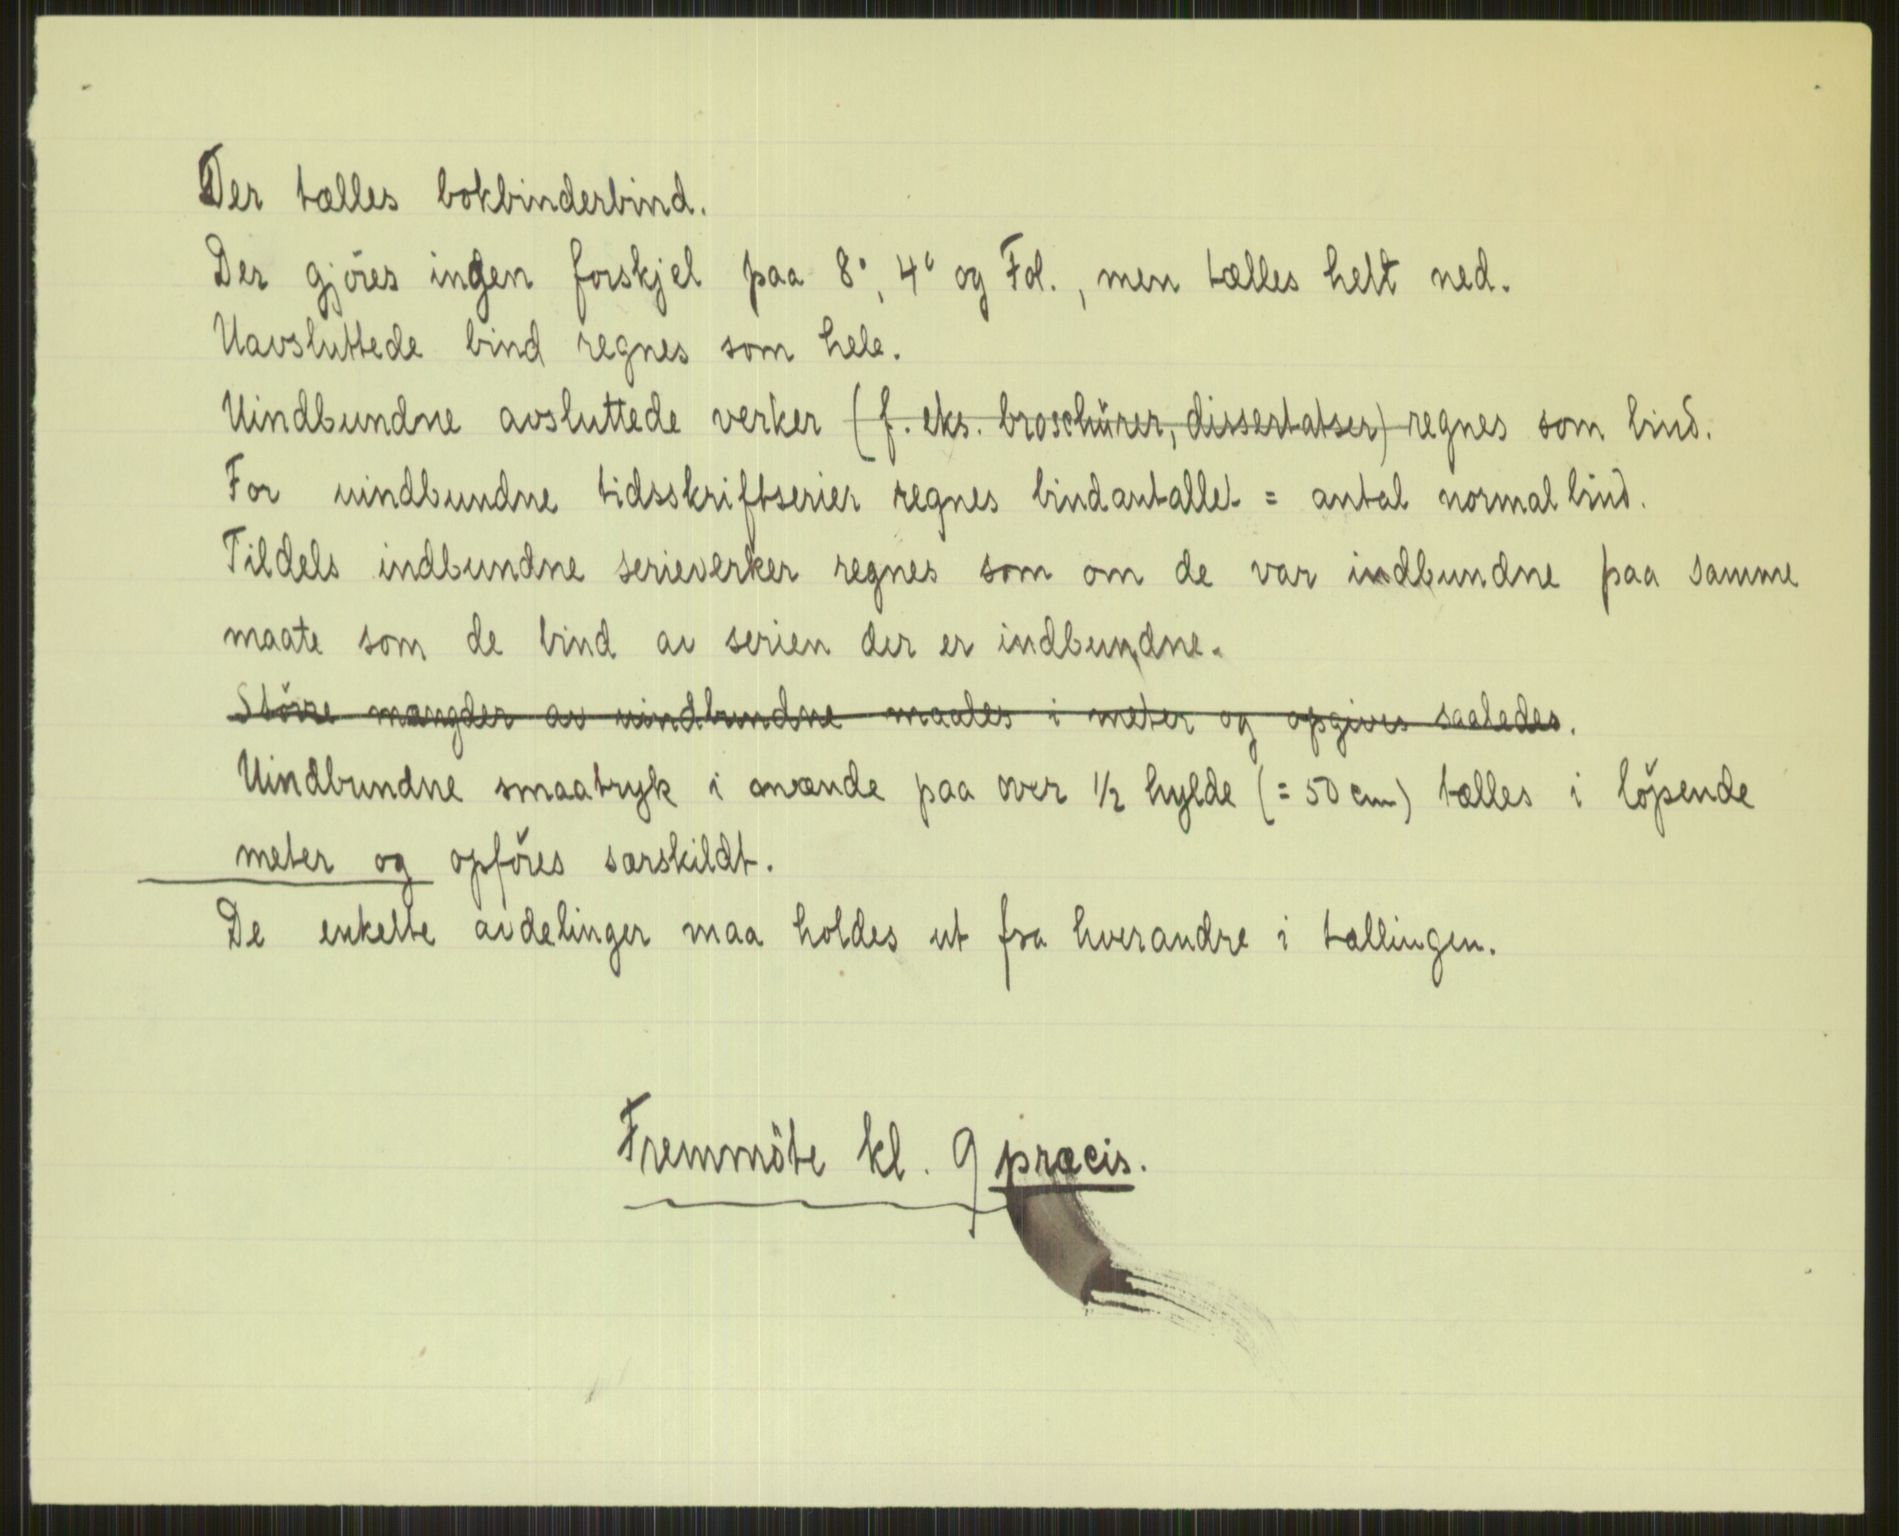 Der tælles bokbinderbind.
Der gjöres ingen forskjel paa 8°, 4° og Fol., men tælles helt ned.
Uavsluttede bind regnes som hele.
Uindbundne avsluttede verker (f. eks. broschürer, dissertatser) regnes som bind.
For uindbundne tidsskriftserier regnes bindantallet = antal normalbind.
Tildels indbundne serieverker regnes som om de var indbundne paa samme
maate som de bind av serien der er indbundne.
Större mængder av uindbundne maales i meter og opgives saaledes.
Uindbundne smaatryk i övænde paa over 1/2 hylde (= 50 cm) tælles i löpende
meter og opföres særskildt.
De enkelte avdelinger maa holdes ut fra hverandre i tællingen.
Fremmöte kl. 9 præcis.